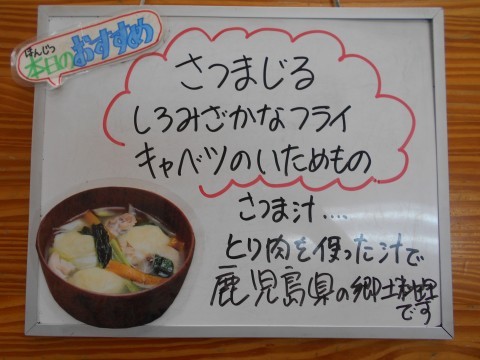 ほんじつ
本日のおすすめ
さつまじる
しろみざかなフライ
キャベツのいためもの
さつま汁....
とり肉を使った汁で
鹿児島県の郷土料理
です